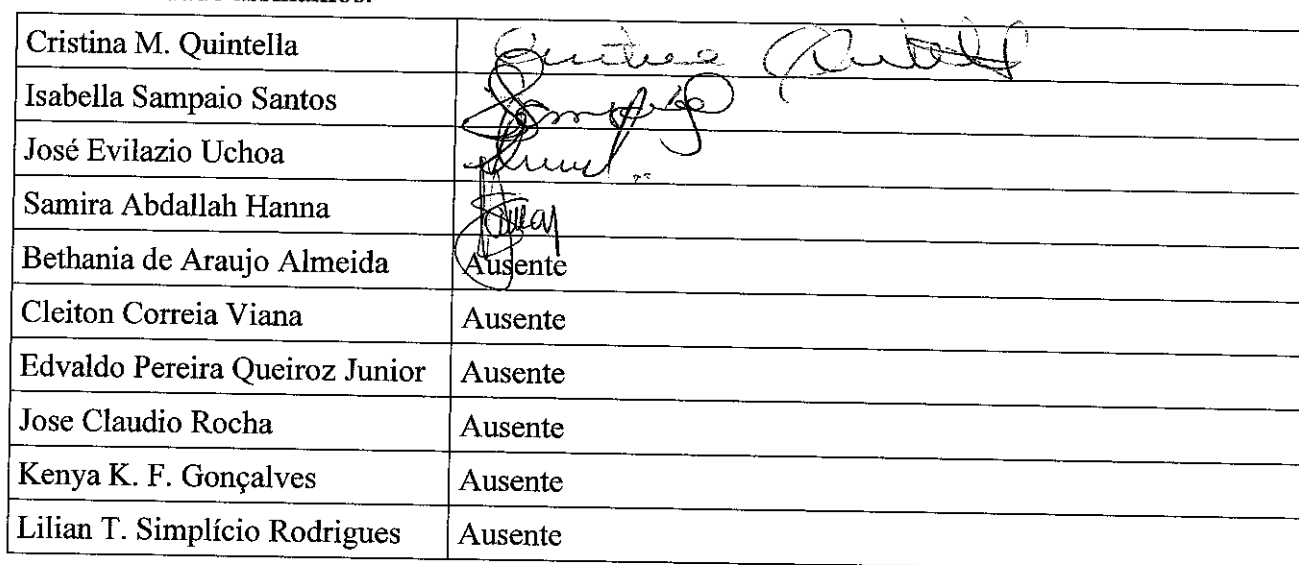 Cristina M. Quintella
Isabella Sampaio Santos
José Evilazio Uchoa
Samira Abdallah Hanna
Bethania de Araujo Almeida Ausente
Cleiton Correia Viana Ausente
Edvaldo Pereira Queiroz Junior Ausente
Jose Claudio Rocha Ausente
Kenya K. F. Gonçalves Ausente
Lilian T. Simplício Rodrigues Ausente